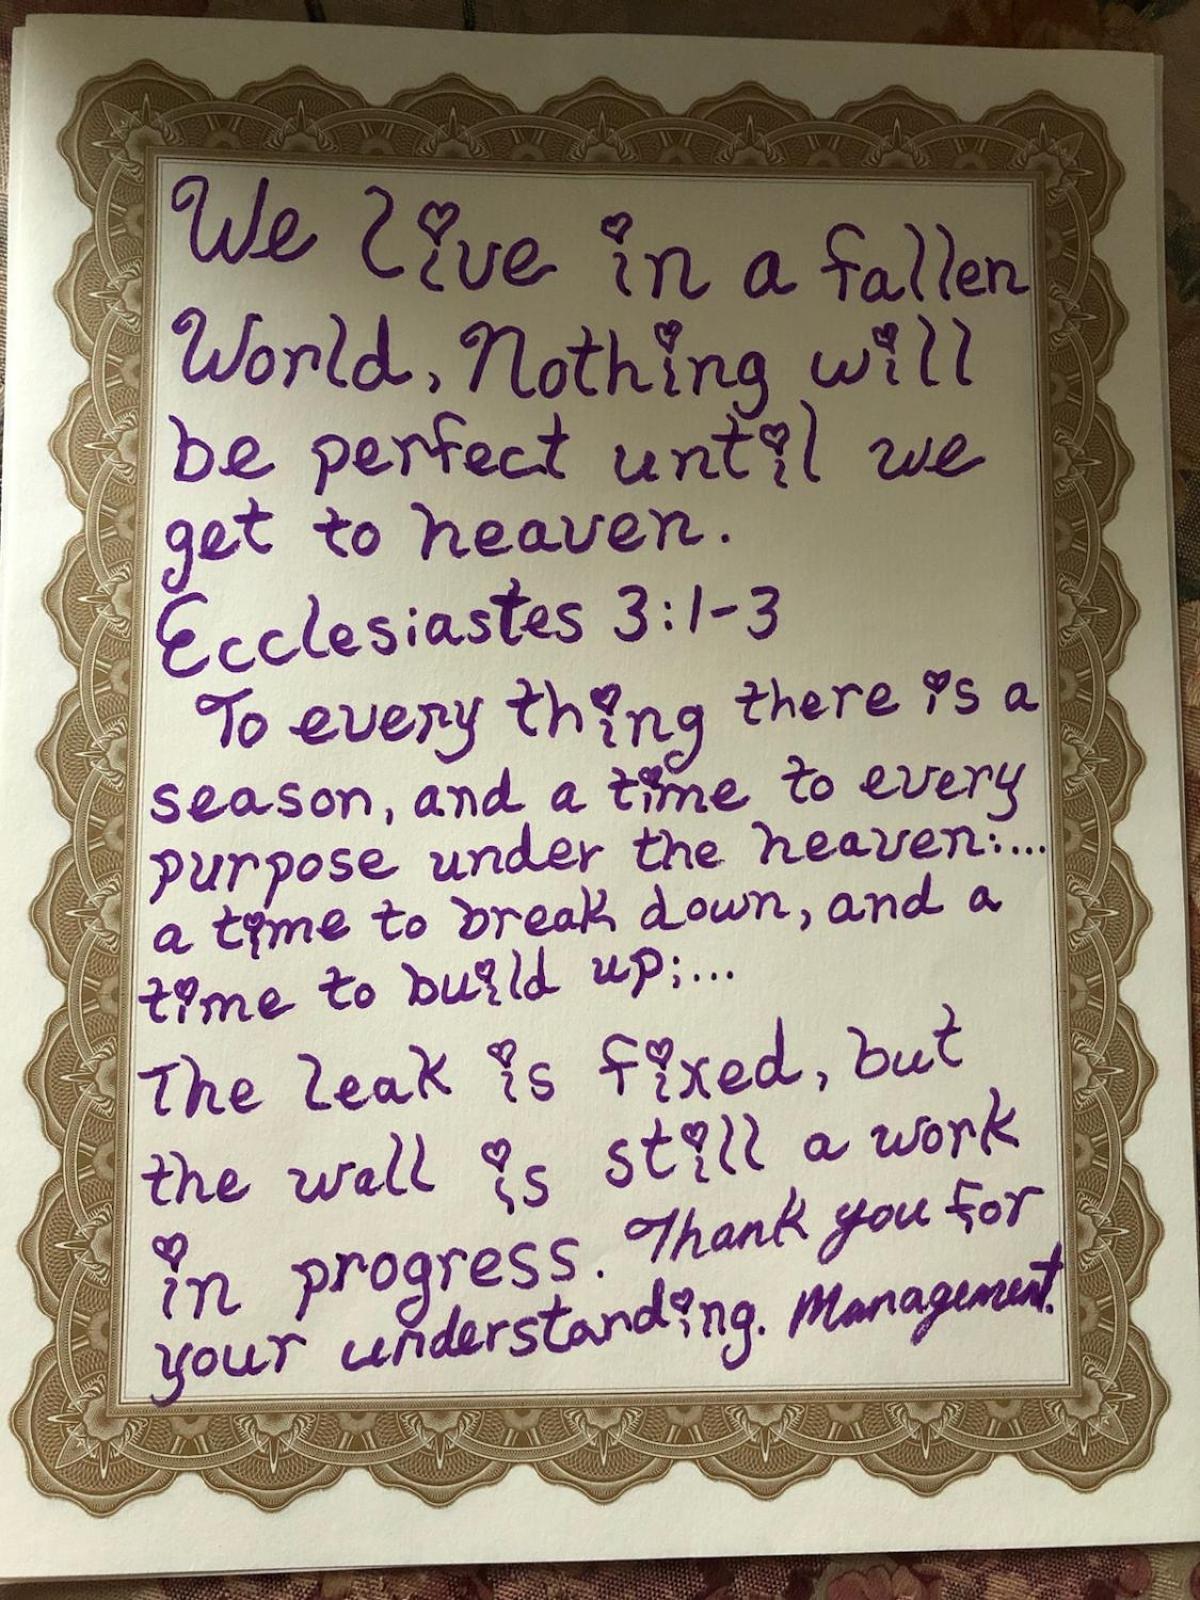 We live in a fallen
World, Nothing will
be perfect until we
get to heaven.
Ecclesiastes 3:1-3
To every thing there is a
season, and a time to every
purpose under the heaven:...
a time to break down, and a
time to build up;...
The leak is fixed, but
the wall is still a work
in progress. Thank you for
your understanding. Management.